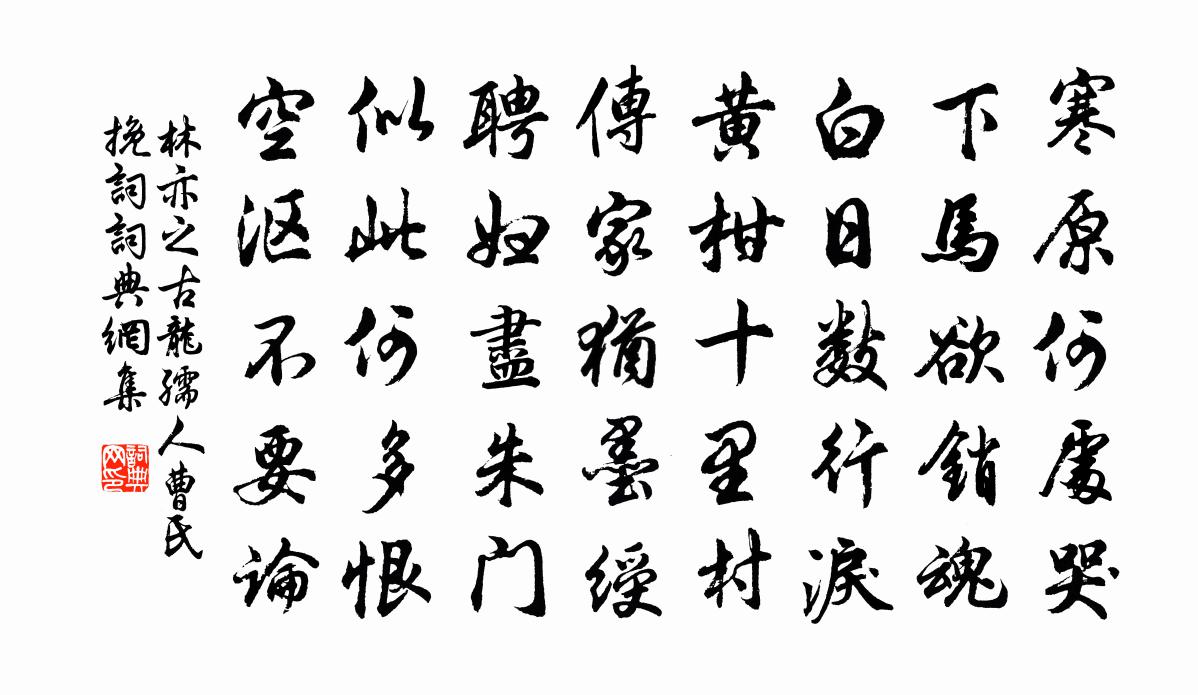 寒原何處哭
下馬欲銷魂
白日數行淚
黃柑十里村
傳家猶墨綬
聘婦盡朱門
似此何多恨
空漚不要論
林亦之古龍孺人曹氏
挽詞詞典網集
詞典网印